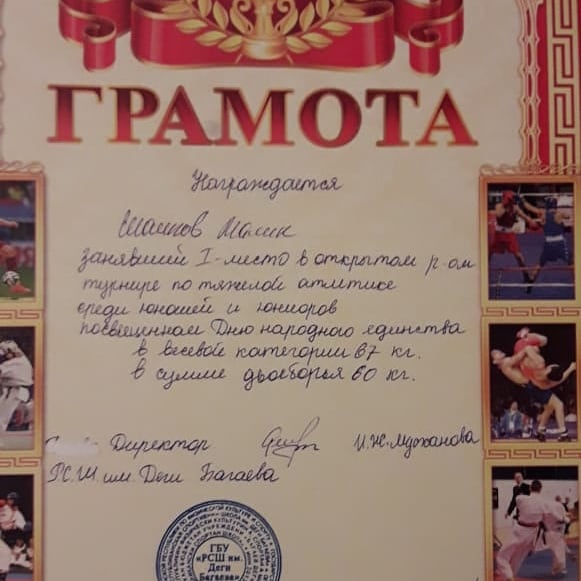 ГРАМОТА
Награждается
Малик
занявший I-место в открытом р-ом
турнире по тяжелой атлетике
среди юношей и юниоров
посвещенном Дню народного единства
в весевой категории 67 кг.
в сумме двоеборья 60 кг.
Директор И.Ж.
Р.С.Ш. им. Деги Багаева
ГБУ
«РСШ им.
Деги
Багаева»